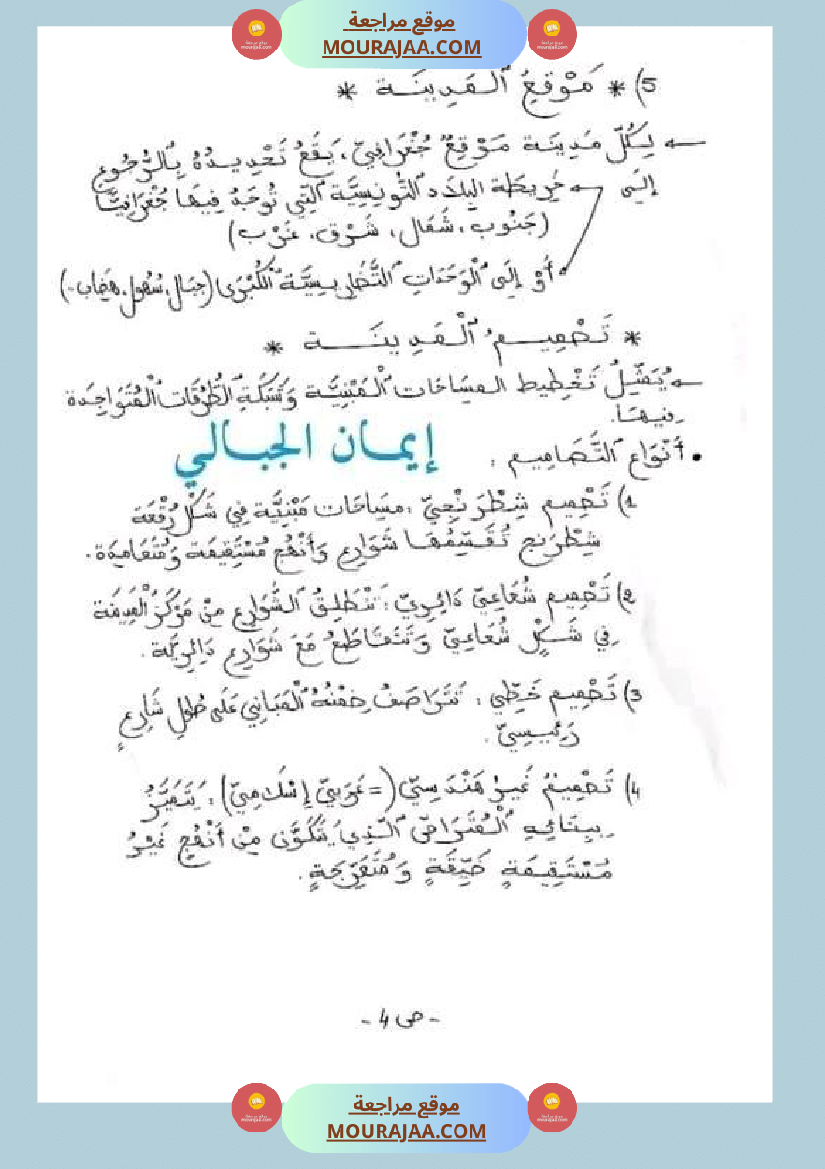 موقع مراجعة
MOURAJAA.COM
5) * مَوْقِعُ ٱلْمَدِينَة *
← لِكُلِّ مَدِينَة مَوْقِعٌ جُغْرَافِيّ، يَقَعُ تَحْدِيدُهُ بِٱلرُّجُوعِ
إِلَى ← خَرِيطَة البلاد ٱلتُّونِسِيَّة ٱلَّتِي تُوجَدُ فِيهَا جُغْرَافِيًّا
(جَنُوب، شَمَال، شَرْق، غَرْب)
أَوْ إِلَى ٱلْوَحَدَاتِ ٱلتَّضَارِيسِيَّة ٱلْكُبْرَى (جِبَال، سُهُول، هِضَاب..)
* تَصْمِيمُ ٱلْمَدِينَة *
← يُمَثِّلُ تَخْطِيط المسَاحَات ٱلْمَبْنِيَّة وَشَبَكَةِ ٱلطُّرُقَات ٱلْمُتَوَاجِدَة
فِيهَا.
• أَنْوَاع ٱلتَّصَامِيم :
إيمان الجبالي
1) تَصْمِيم شِطْرَنْجِيّ : مسَاحَات مَبْنِيَّة فِي شَكْلِ رُقْعَة
شِطْرَنج تُقَسِّمُهَا شَوَارِع وَأَنْهُج مُسْتَقِيمَة وَمُتَعَامِدَة.
2) تَصْمِيم شُعَاعِيّ دَائِرِيّ : تَنْطَلِقُ ٱلشَّوَارِع مِنْ مَرْكَزِ ٱلْمَدِينَة
فِي شَكْلٍ شُعَاعِيّ وَتَتَقَاطَعُ مَعَ شَوَارِع دَائِرِيَّة.
3) تَصْمِيم خَطِّي : تَتَرَاصَفُ ضِمْنَهُ ٱلْمَبَانِي عَلَى طُولِ شَارِعٍ
رَئِيسِيّ.
4) تَصْمِيمٌ غَيْرُ هَنْدَسِيّ (= عَرَبِيّ إِسْلَامِيّ) : يَتَمَيَّزُ
بِبِنَائِهِ ٱلْمُتَرَاصِّ ٱلَّذِي يَتَكَوَّن مِنْ أَنْهُجٍ غَيْرُ
مُسْتَقِيمَةٍ ضَيِّقَةٍ وَمُتَعَرِّجَةٍ.
- ص 4 -
موقع مراجعة
MOURAJAA.COM